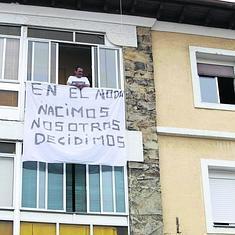 EN EL NODO
NACIMOS
NOSOTROS
DECIDIMOS